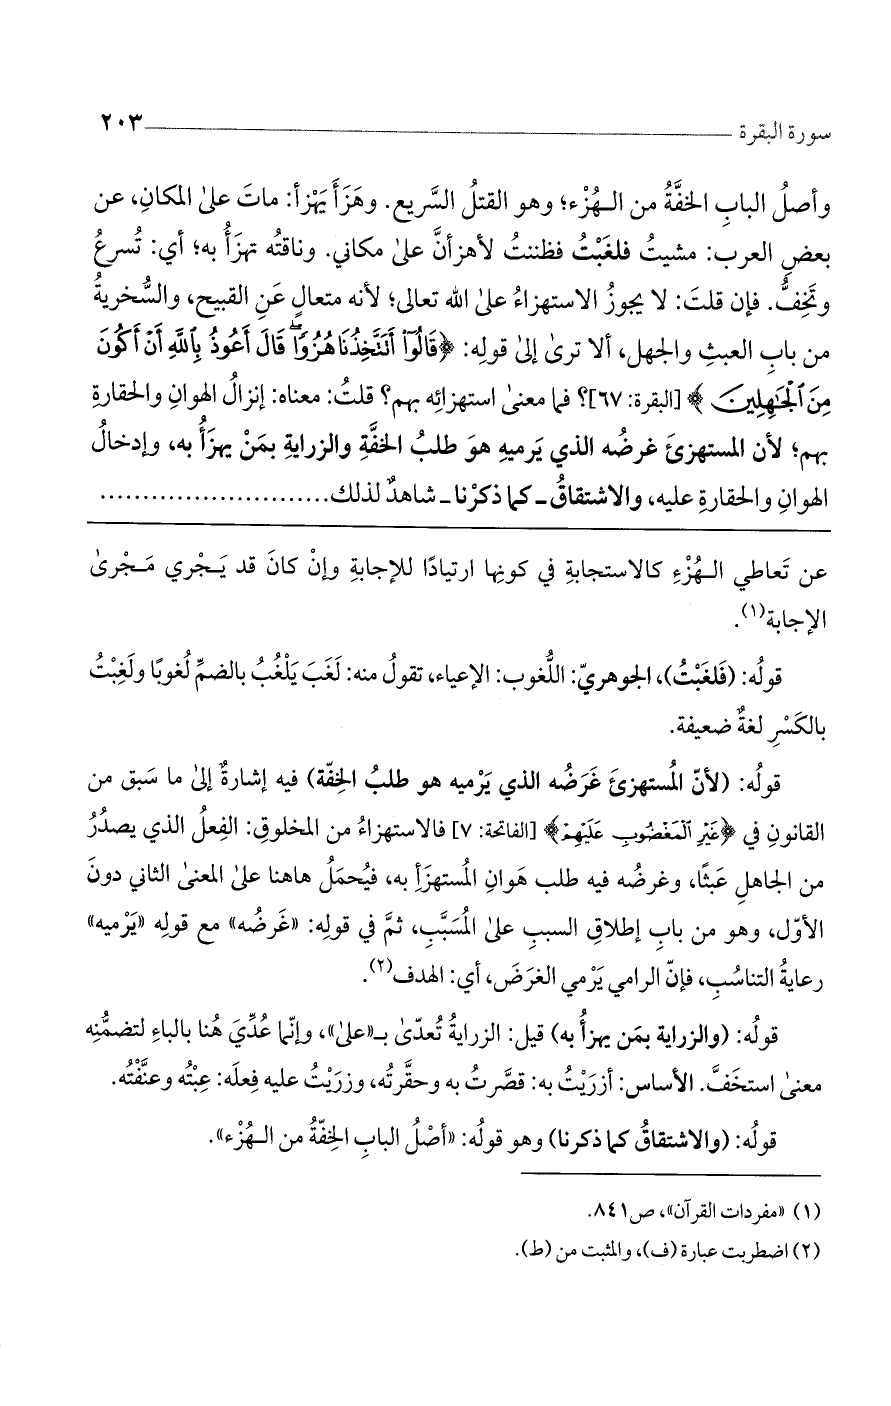 سورة البقرة ٢٠٣
وأصلُ البابِ الخفَّةُ من الـهُزْء؛ وهو القتلُ السَّريع. وهَزَأَ يَهْزأ: ماتَ علىٰ المكانِ، عن
بعضِ العرب: مشيتُ فلغَبْتُ فظننتُ لأهزأنَّ علىٰ مكاني. وناقتُه تهزَأُ به؛ أي: تُسرعُ
وتَخِفُّ. فإن قلتَ: لا يجوزُ الاستهزاءُ علىٰ الله تعالى؛ لأنه متعالٍ عَنِ القبيح، والسُّخريةُ
من بابِ العبثِ والجهل، ألا ترىٰ إلىٰ قولِه: ﴿قَالُوٓا۟ أَتَتَّخِذُنَا هُزُوًۭا ۖ قَالَ أَعُوذُ بِٱللَّهِ أَنْ أَكُونَ
مِنَ ٱلْجَٰهِلِينَ﴾ [البقرة: ٦٧]؟ فما معنىٰ استهزائِه بهم؟ قلتُ: معناه: إنزالُ الهوانِ والحقارةِ
بهم؛ لأن المستهزئَ غرضُه الذي يَرميهِ هوَ طلبُ الخفَّةِ والزرايةِ بمَنْ يهزَأُ به، وإدخالُ
الهوانِ والحقارةِ عليه، والاشتقاقُ ـ كما ذكرْنا ـ شاهدٌ لذلك...........................
عن تَعاطي الـهُزْءِ كالاستجابةِ في كونِها ارتيادًا للإجابةِ وإنْ كانَ قد يَـجْري مَـجْرىٰ
الإجابة(١).
قولُه: (فَلغَبْتُ)، الجوهريّ: اللُّغوب: الإعياء، تقولُ منه: لَغَبَ يَلْغُبُ بالضمِّ لُغوبًا ولَغِبْتُ
بالكَسْرِ لغةٌ ضعيفة.
قولُه: (لأنّ المُستهزئَ غَرَضُه الذي يَرْميه هو طلبُ الخِفّة) فيه إشارةٌ إلىٰ ما سَبق من
القانونِ في ﴿غَيْرِ الْمَغْضُوبِ عَلَيْهِمْ﴾ [الفاتحة: ٧] فالاستهزاءُ من المخلوقِ: الفِعلُ الذي يصدُرُ
من الجاهلِ عَبثًا، وغرضُه فيه طلب هَوانِ المُستهزَأِ به، فيُحمَلُ هاهنا علىٰ المعنىٰ الثاني دونَ
الأوّل، وهو من بابِ إطلاقِ السببِ علىٰ المُسَبَّبِ، ثمَّ في قولِه: «غَرضُه» مع قولِه «يَرْميه»
رعايةُ التناسُبِ، فإنّ الرامي يَرْمي الغرَضَ، أي: الهدف(٢).
قولُه: (والزراية بمَن يهزأُ به) قيل: الزرايةُ تُعدّىٰ بـ«علىٰ»، وإنّما عُدِّيَ هُنا بالباءِ لتضمُّنِه
معنىٰ استخَفَّ. الأساس: أزرَيْتُ به: قصَّرتُ به وحقَّرتُه، وزرَيْتُ عليه فِعلَه: عِبْتُه وعنَّفْتُه.
قولُه: (والاشتقاقُ كما ذكرنا) وهو قولُه: «أصْلُ البابِ الخِفّةُ من الـهُزْء».
(١) «مفردات القرآن»، ص٨٤١.
(٢) اضطربت عبارة (ف)، والمثبت من (ط).